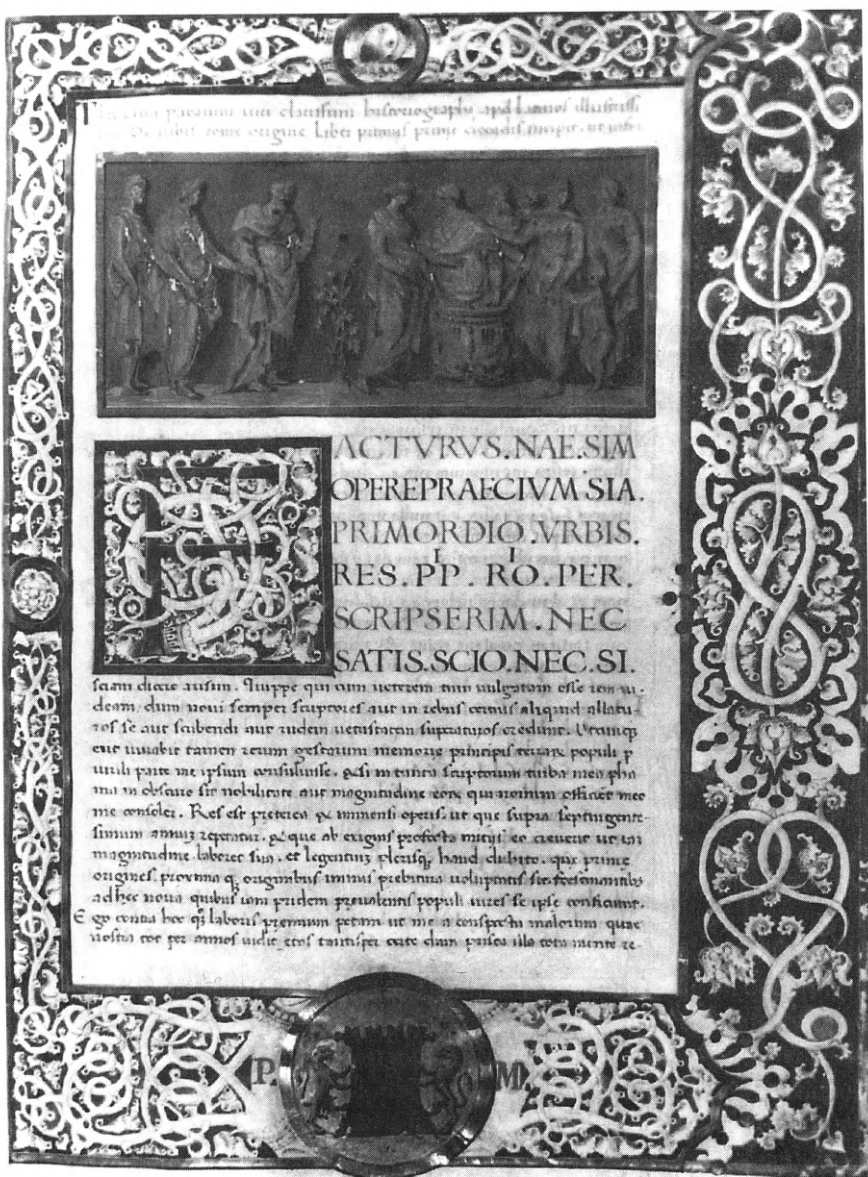 patauini uiri clarissimi historiographi apud latinos illustrissi
De urbis rome origine Liber primus prime decadis incipit. ut
FACTVRVS.NAE.SIM
OPEREPRAECIVM SIA.
PRIMORDIO.VRBIS.
RES.PP.RO.PER.
SCRIPSERIM.NEC
SATIS.SCIO.NEC.SI.
sciam dicere ausim. Quippe qui cum ueterem tum uulgatam esse rem ui-
deam, dum noui semper scriptores aut in rebus certius aliquid allatu-
ros se aut scribendi aut rudem uetustatem supraturos credunt. Utcunqꝫ
erit iuuabit tamen rerum gestarum memorie principis terrarum populi p
uirili parte me ipsum consuluisse. & si in tanta scriptorum turba mea pha
ma in obscuro sit nobilitate aut magnitudine eorum qui nomini officient meo
me consoler. Res est preterea & immensi operis. ut que supra septingente-
simum annum repetatur. & que ab exiguis profecta initijs eo creuerit ut iam
magnitudine laboret sua. et legentium plerisqꝫ haud dubito. quin prime
origines. proxima qꝫ originibus minus prebitura uoluptatis sit. festinantibus
ad hec noua quibus iam pridem preualentis populi uires se ipse conficiunt.
Ego contra hoc qꝫ laboris premium petam ut me a conspectu malorum quae
nostra tot per annos uidit etas tantisper certe dum prisca illa tota mente re-
P. M.